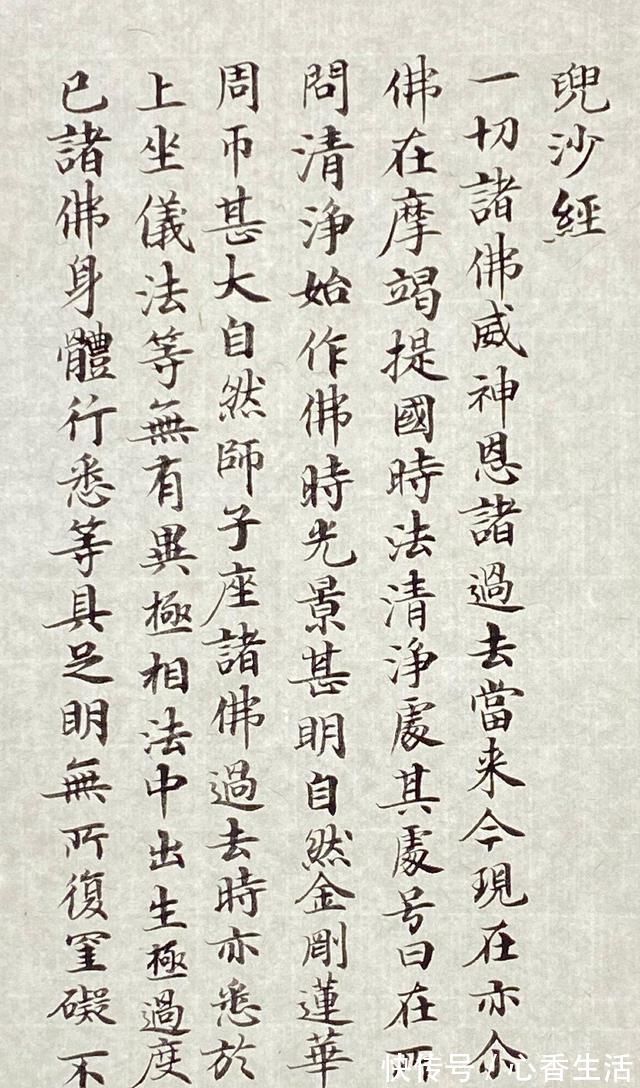 兜沙經
一切諸佛威神恩諸過去當来今現在亦尒
佛在摩竭提國時法清淨處其處号曰在所
問清淨始作佛時光景甚明自然金剛蓮華
周帀甚大自然師子座諸佛過去時亦悉於
上坐儀法等無有異極相法中出生極過度
已諸佛身體行悉等具足明無所復罣礙不
快传号/心香生活